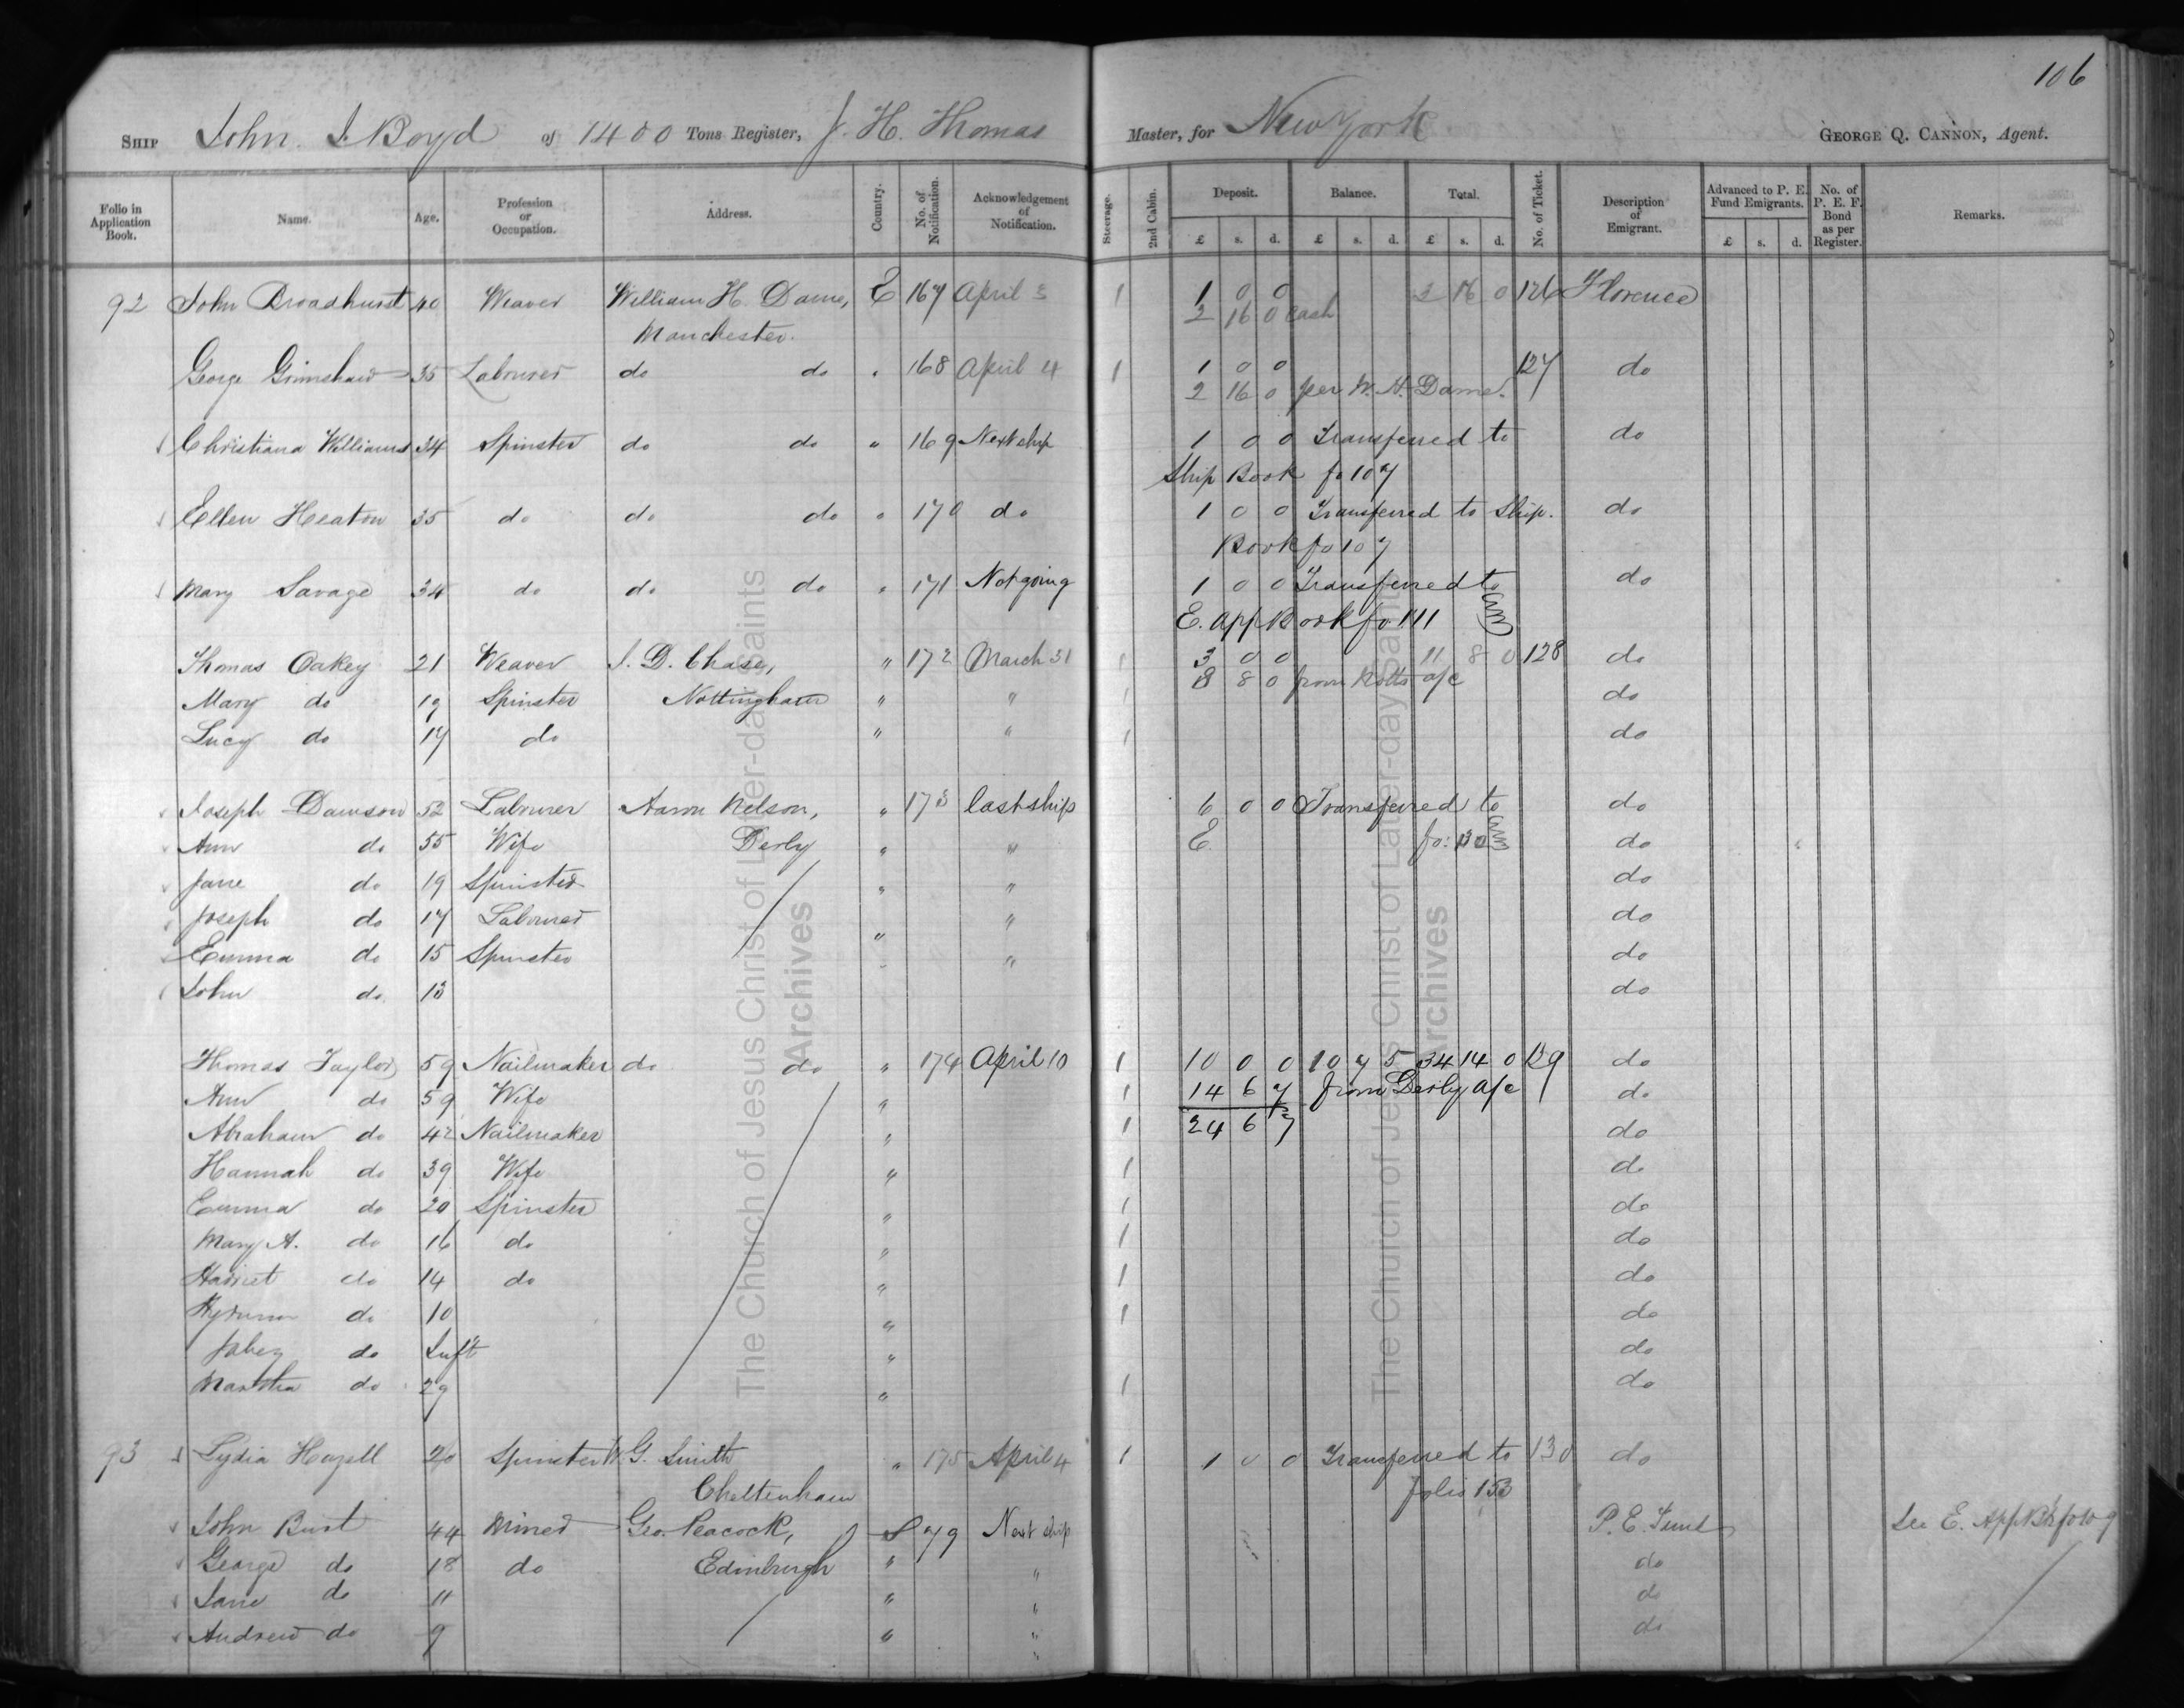 106
SHIP John J. Boyd of 1400 Tons Register, J. H. Thomas Master, for New York GEORGE Q. CANNON, Agent.
Folio in Application Book. Name. Age. Profession or Occupation. Address. Country. No. of Notification. Acknowledgement of Notification. Steerage. 2nd Cabin. Deposit. £ s. d. Balance. £ s. d. Total. £ s. d. No. of Ticket. Description of Emigrant. Advanced to P. E. Fund Emigrants. £ s. d. No. of P. E. F. Bond as per Register. Remarks.
92 John Broadhurst 40 Weaver William H. Dame, E 167 April 3 1 1 0 0 2 16 0 126 Florence
Manchester. 2 16 0 Cash
George Grimshaw 35 Labourer do do " 168 April 4 1 1 0 0 127 do
2 16 0 per W. H. Dame.
Christiana Williams 34 Spinster do do " 169 Next ship 1 0 0 Transferred to do
Ship Book fo 107
Ellen Heaton 35 do do do " 170 do 1 0 0 Transferred to Ship. do
Book fo 107
Mary Savage 34 do do do " 171 Not going 1 0 0 Transferred to do
E. App Book fo 111
Thomas Oakey 21 Weaver J. D. Chase, " 172 March 31 1 3 0 0 11 8 0 128 do
Mary do 19 Spinster Nottingham " " 1 8 8 0 from Notts a/c do
Lucy do 17 do " " 1 do
Joseph Dawson 52 Labourer Aaron Nelson, " 173 last ship 6 0 0 Transferred to do
Ann do 55 Wife Derby " " E. fo: 130 do
Jane do 19 Spinster " " do
Joseph do 17 Labourer " " do
Emma do 15 Spinster " " do
John do 13 do
Thomas Taylor 59 Nailmaker do do " 174 April 10 1 10 0 0 10 7 5 34 14 0 129 do
Ann do 59 Wife " 1 14 6 7 from Derby a/c do
Abraham do 42 Nailmaker " 1 24 6 7 do
Hannah do 39 Wife " 1 do
Emma do 20 Spinster " 1 do
Mary A. do 16 do " 1 do
Harriet do 14 do " 1 do
Hyrum do 10 " 1 do
Jabez do Inft " do
Martha do 29 " 1 do
93 Lydia Hazell 20 Spinster W. G. Smith " 175 April 4 1 1 0 0 Transferred to 130 do
Cheltenham folio 153
John Bust 44 Miner Geo. Peacock, S 79 Next ship P. E. Fund See E. App Bk fo 109
George do 18 do Edinburgh " " do
Jane do 11 " " do
Andrew do 9 " " do
The Church of Jesus Christ of Latter-day Saints
Archives
The Church of Jesus Christ of Latter-day Saints
Archives